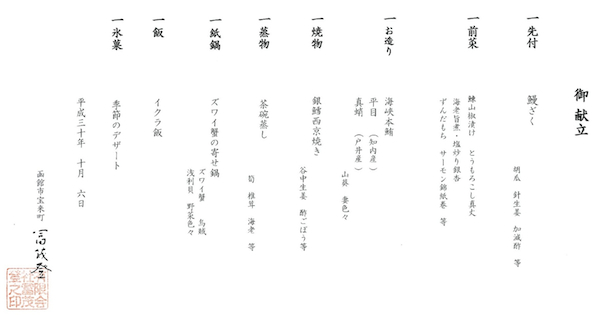 御献立
一 先付
鰻ざく
胡瓜 針生姜 加減酢 等
一 前菜
鰊山椒漬け とうもろこし真丈
海老旨煮・塩炒り銀杏
ずんだもち サーモン錦紙巻 等
一 お造り
海峡本鮪
平目 (知内産)
真蛸 (戸井産)
山葵 妻色々
一 焼物
銀鱈西京焼き
谷中生姜 酢ごぼう等
一 蒸物
茶碗蒸し
筍 椎茸 海老 等
一 紙鍋
ズワイ蟹の寄せ鍋
ズワイ蟹 烏賊
浅利貝 野菜色々
一 飯
イクラ飯
一 氷菓
季節のデザート
平成三十年 十月 六日
函館市宝来町 冨茂登